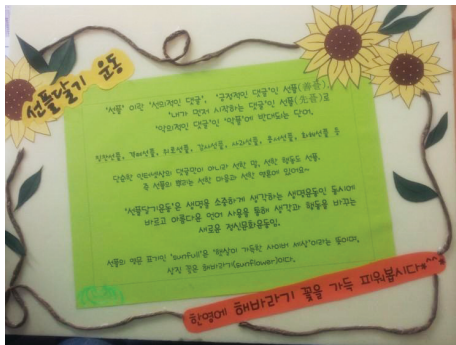 선플달기 운동
'선플' 이란 '선의적인 댓글', '긍정적인 댓글'인 선플(善플),
'내가 먼저 시작하는 댓글'인 선플(先플)로
'악의적인 댓글'인 '악플'에 반대되는 단어.
칭찬선플, 격려선플, 위로선플, 감사선플, 사과선플, 봉사선플, 화해선플 등
단순한 인터넷상의 댓글만이 아니라 선한 말, 선한 행동도 선플.
즉 선플의 뿌리는 선한 마음과 선한 영혼에 있어요~
'선플달기운동'은 생명을 소중하게 생각하는 생명운동인 동시에
바르고 아름다운 언어 사용을 통해 생각과 행동을 바꾸는
새로운 정신문화운동임.
선플의 영문 표기인 'sunfull'은 '햇살이 가득한 사이버 세상'이라는 뜻이며,
상징 꽃은 해바라기(sunflower)이다.
한영에 해바라기 꽃을 가득 피워봅시다*^^*